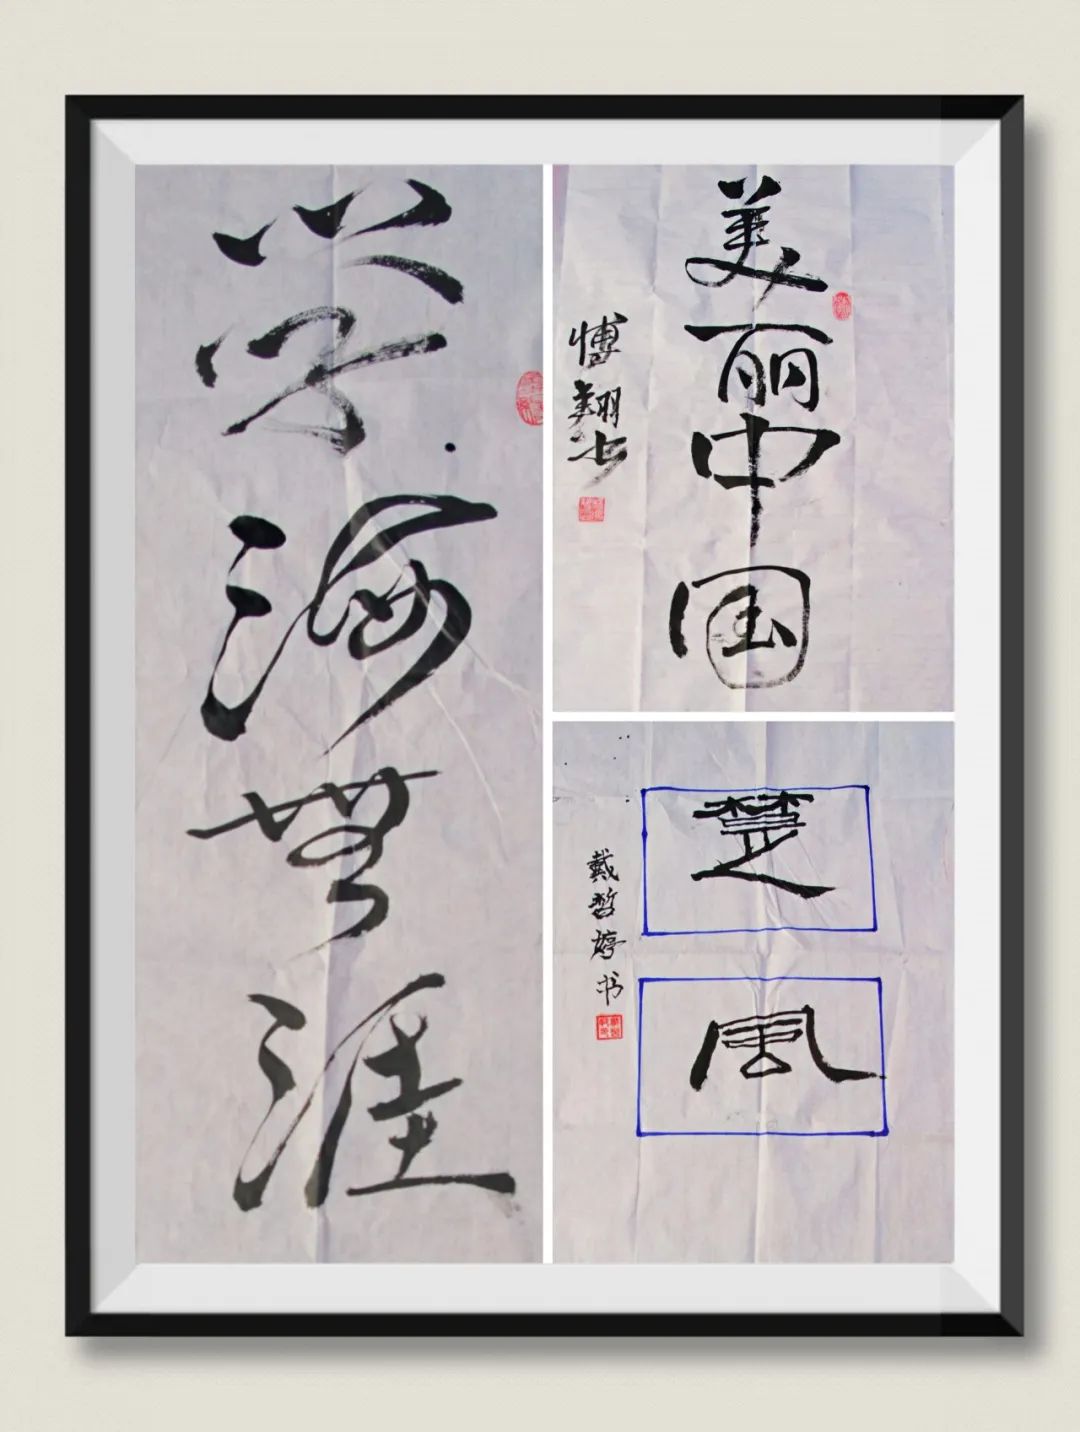 学海無涯
美丽中国
博翔书
楚風
戴哲婷书